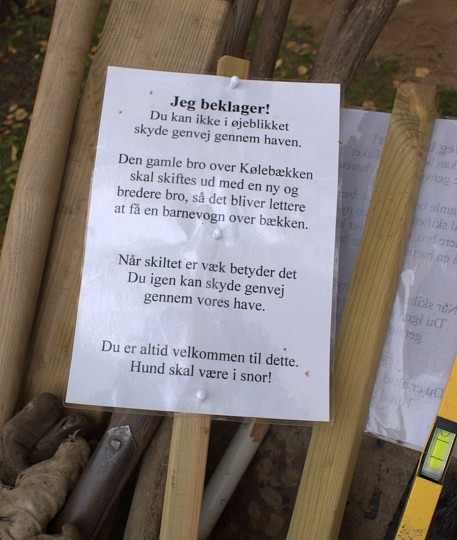 Jeg beklager!
Du kan ikke i øjeblikket
skyde genvej gennem haven.
Den gamle bro over Kølebækken
skal skiftes ud med en ny og
bredere bro, så det bliver lettere
at få en barnevogn over bækken.
Når skiltet er væk betyder det
Du igen kan skyde genvej
gennem vores have.
Du er altid velkommen til dette.
Hund skal være i snor!